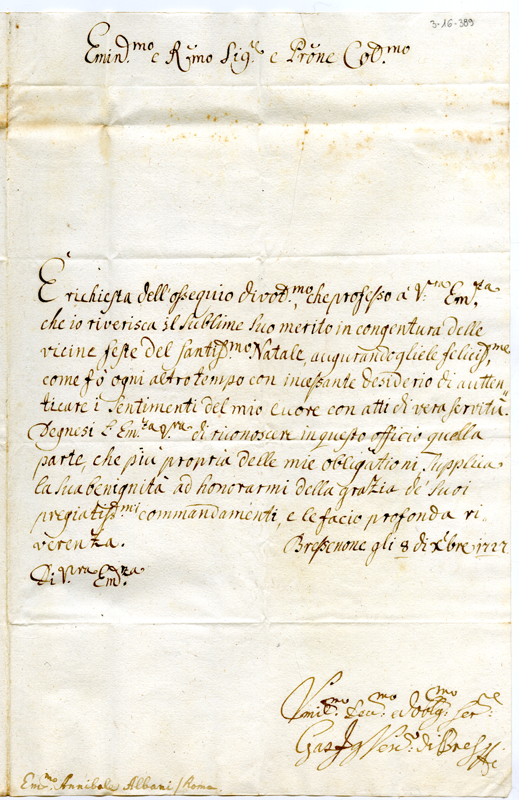 3-16-389
Emin.mo e R.mo Sig.r e Prõne Col.mo
È richiesta dell'ossequio divot.mo, che professo à V.ra Em.za
che io riverisca il sublime suo merito in congentura delle
vicine feste del Santiss.mo Natale, augurandogliele feliciss.me
come fò ogni altro tempo con incessante desiderio di auten=
ticare i sentimenti del mio cuore con atti di vera servitù.
Degnesi l'Em.za V.ra di riconoscere in questo officio quella
parte, che più propria delle mie obligationi, supplica
la sua benignità ad honorarmi della grazia de' suoi
pregiatiss.mi commandamenti, e le facio profonda ri=
verenza.
Bressenone gli 8 di Xbre 1727
Di V.ra Em.za
Umil.mo Deu.mo ed obl.mo ser.re
Gas Ig Ves.o di Bress.e
Em.mo Annibale Albani / Roma